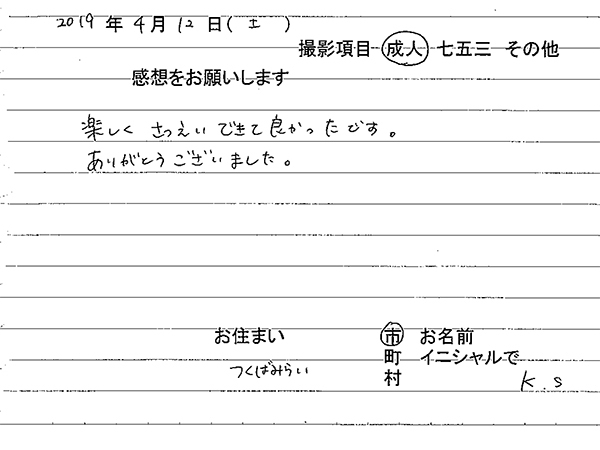 2019年4月12日(土)
撮影項目 成人 七五三 その他
感想をお願いします
楽しく さつえい できて 良かったです。
ありがとうございました。
お住まい 市 お名前
町 イニシャルで
つくばみらい 村 K.S